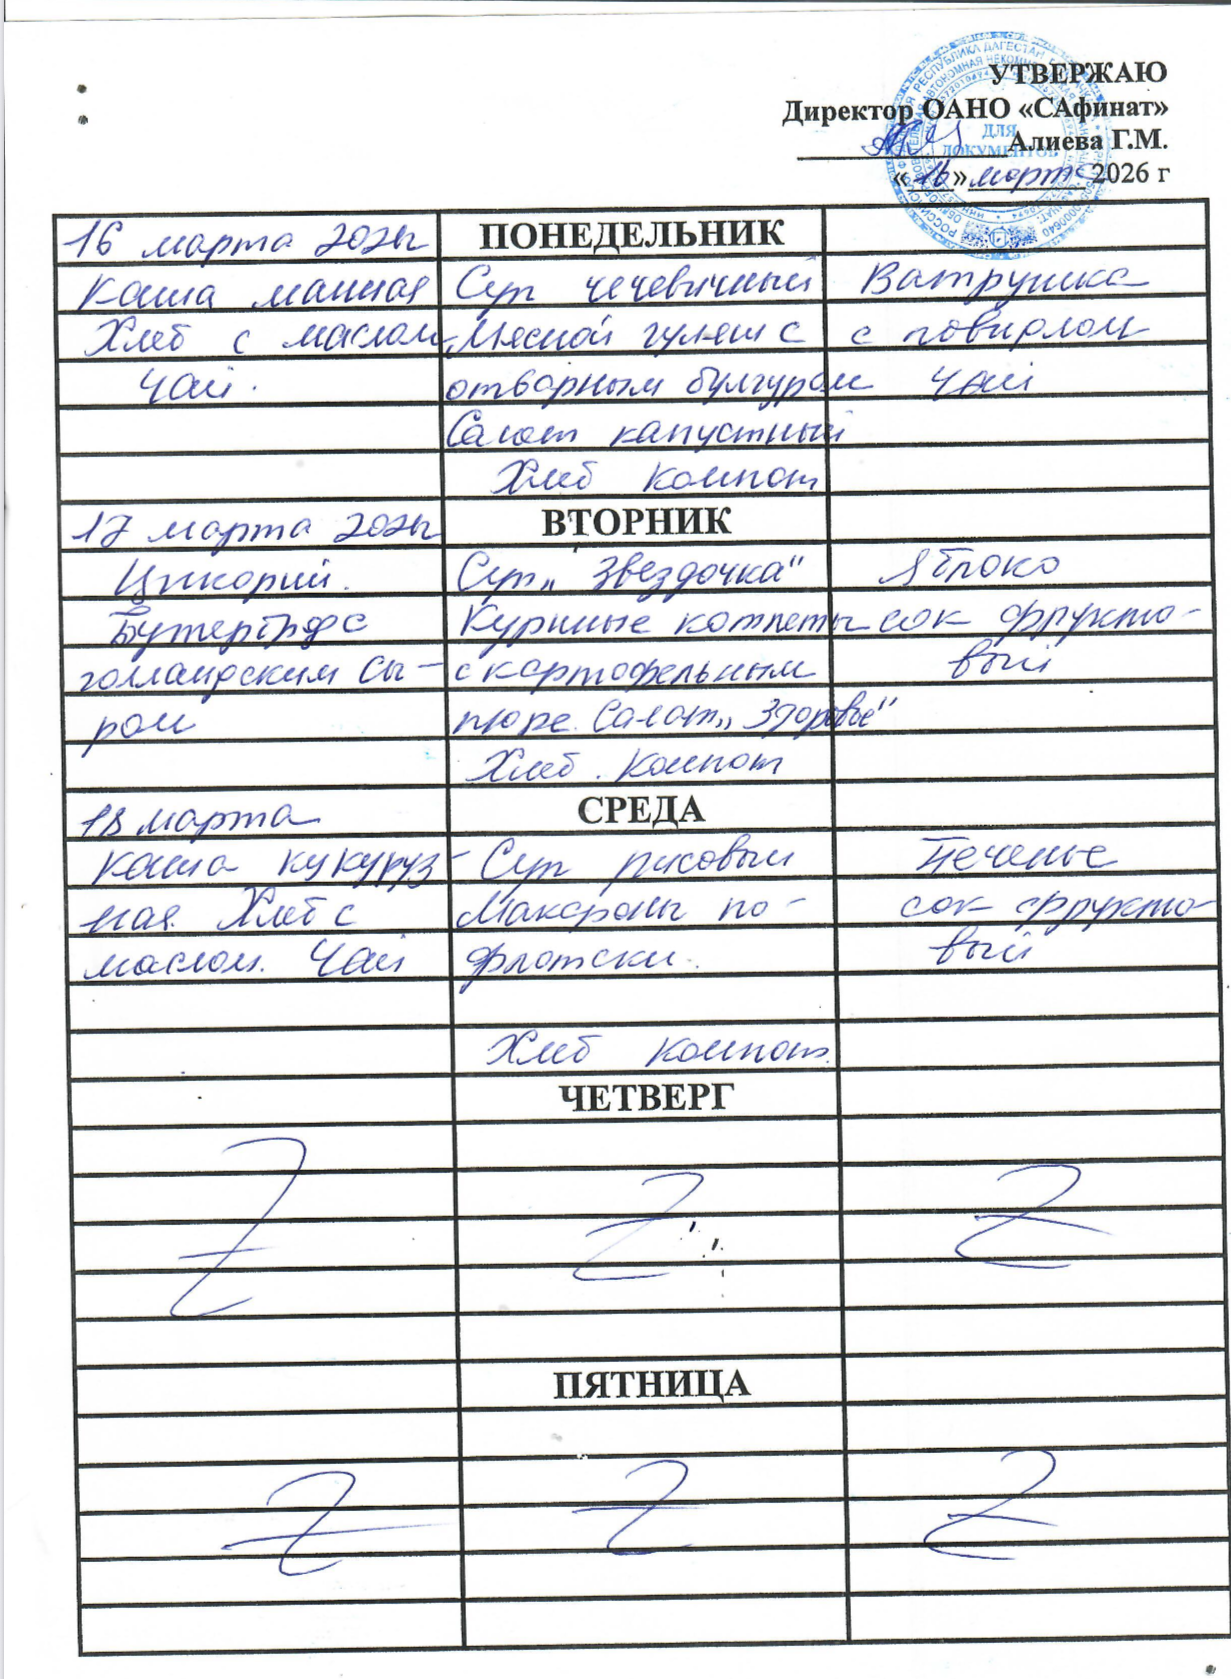 УТВЕРЖАЮ
Директор ОАНО «САфинат»
ДЛЯ
ДОКУМЕНТОВ
Алиева Г.М.
«16» март 2026 г
16 марта 2026г ПОНЕДЕЛЬНИК
Каша манная Суп чечевичный Ватрушка
Хлеб с маслом, Мясной гуляш с с повидлом
Чай. отварным булгуром Чай
Салат капустный
Хлеб компот
17 марта 2026г ВТОРНИК
Цикорий. Суп „Звездочка" Яблоко
Бутерброд с Куриные котлеты сок фрукто-
голландским сы- с картофельным вый
ром пюре. Салат „Здоровье"
Хлеб. Компот
18 марта СРЕДА
Каша кукуруз- Суп рисовый Печенье
ная. Хлеб с Макароны по- сок фрукто-
маслом. Чай флотски. вый
Хлеб компот.
ЧЕТВЕРГ
ПЯТНИЦА